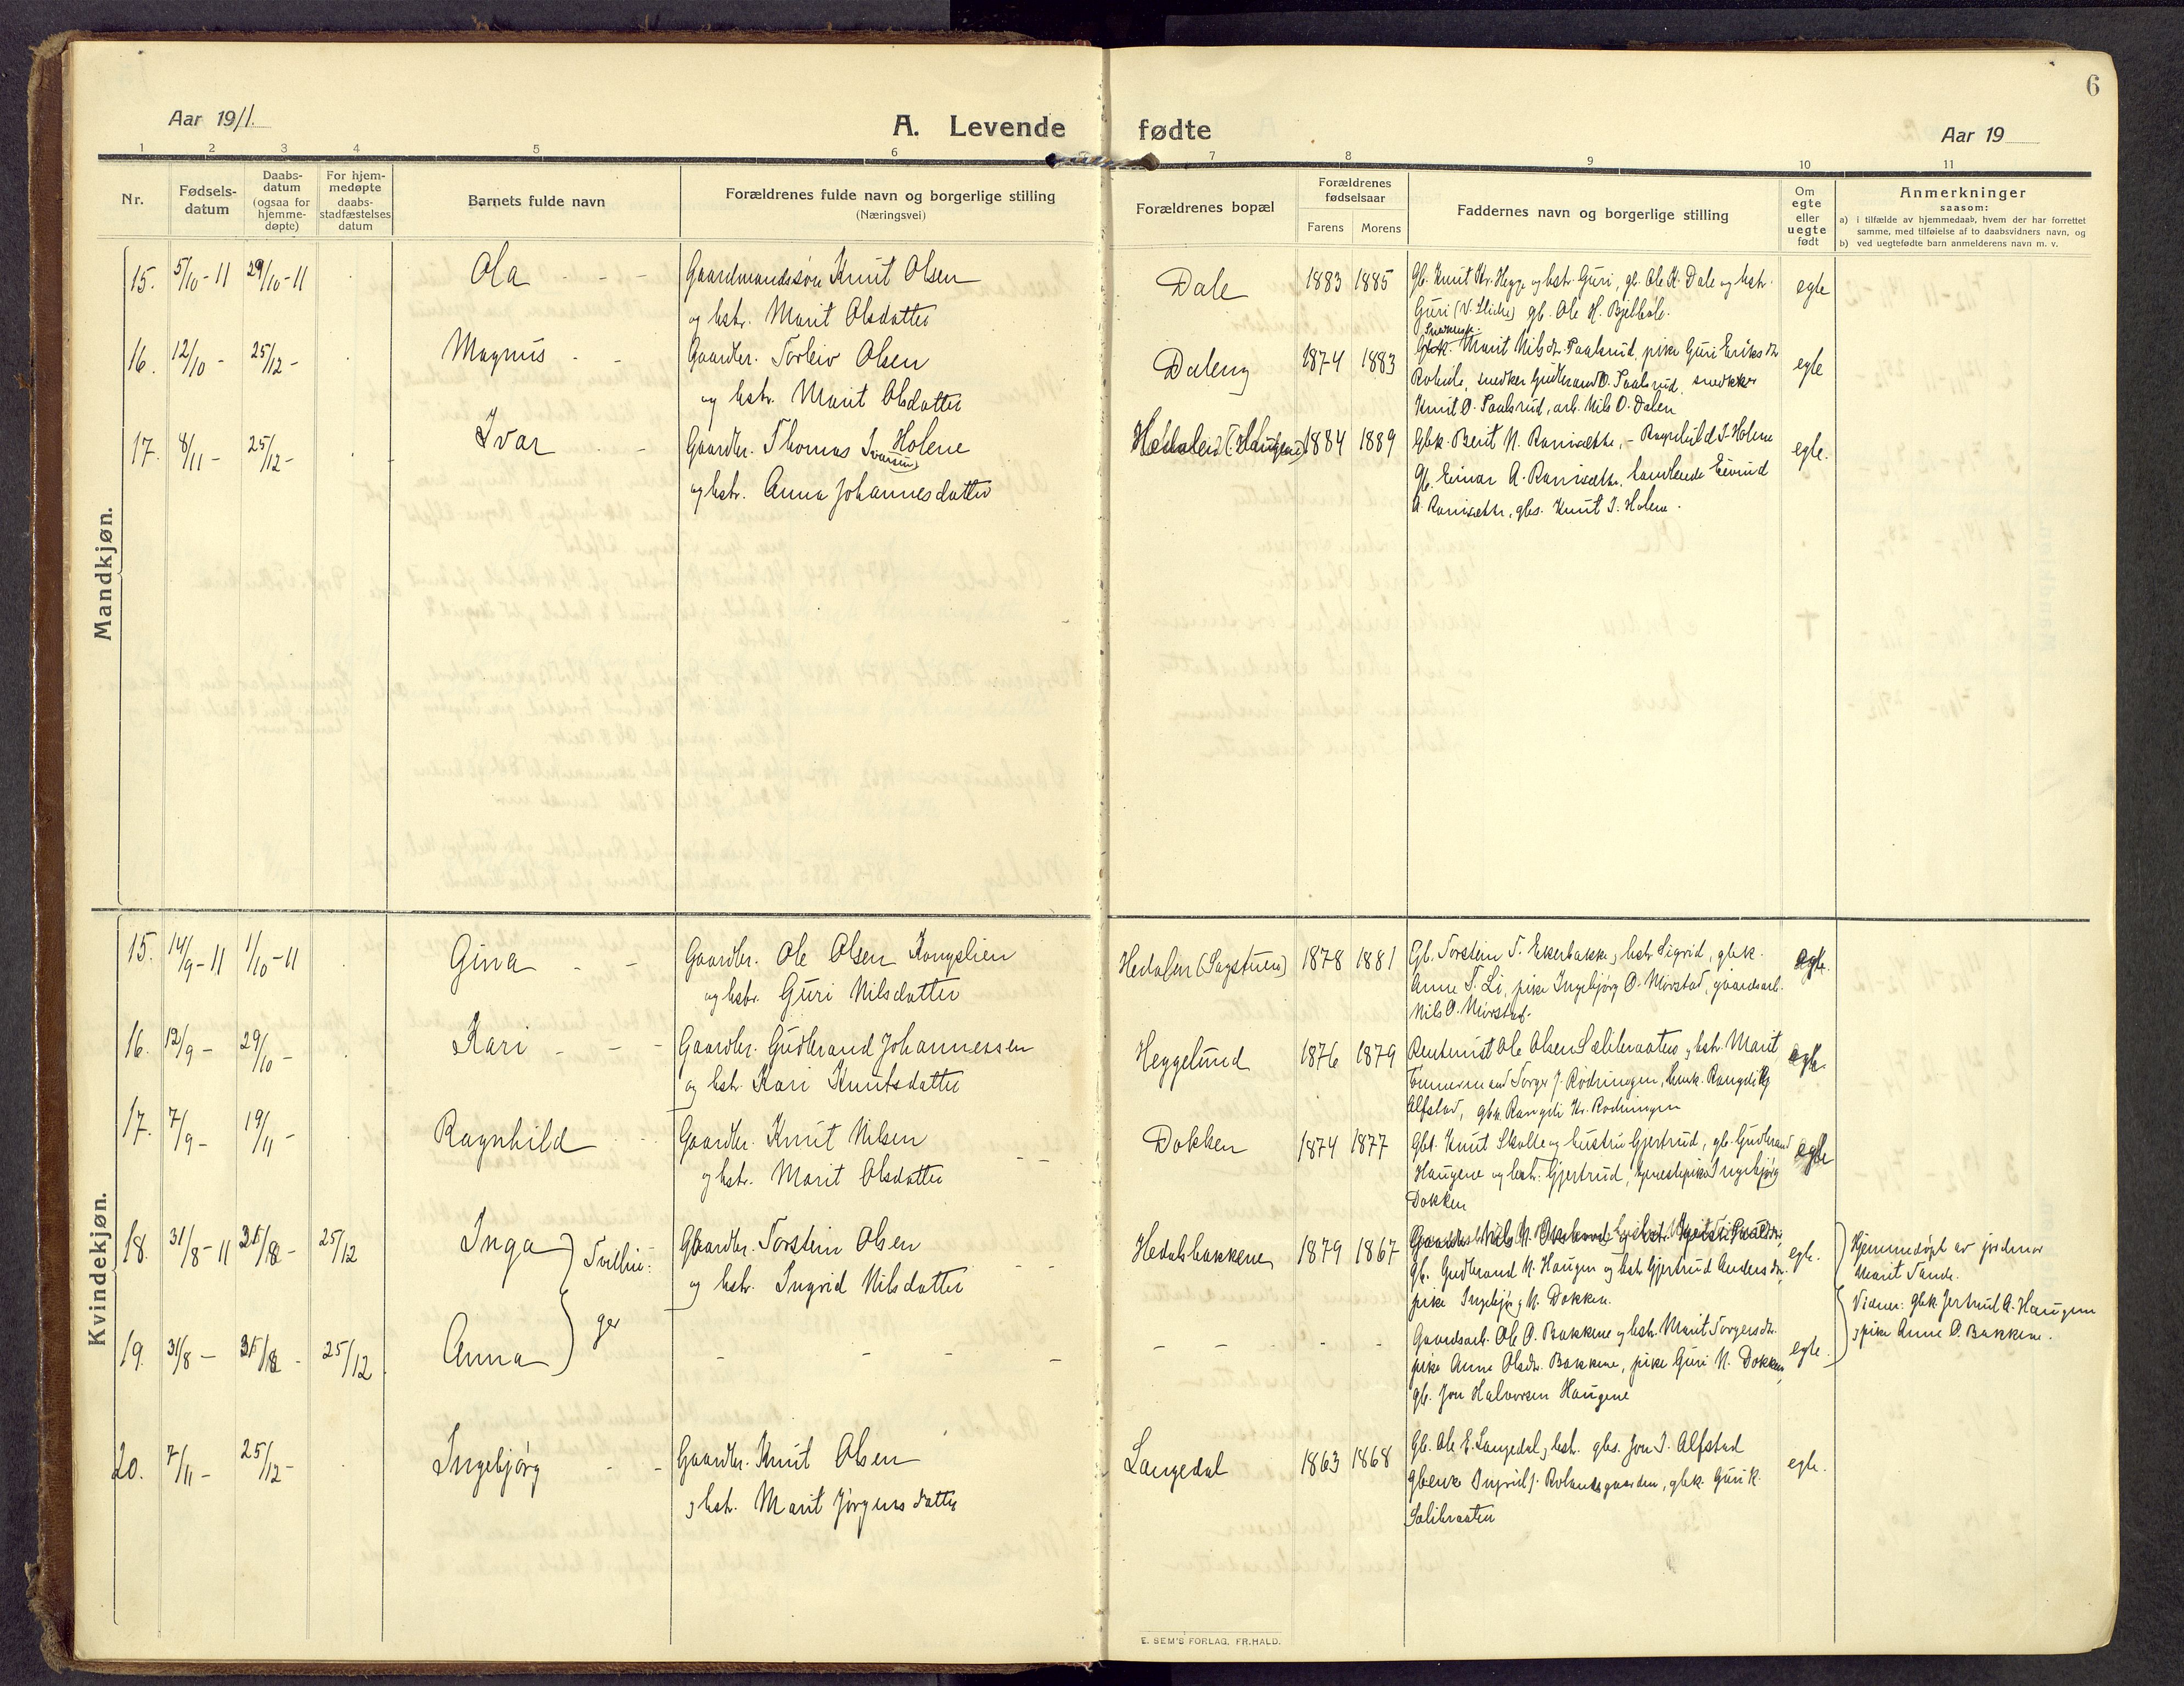 6
Aar 1911.
A. Levende fødte
Aar 19
1 2 3 4 5 6 7 8 9 10 11
Nr.
Fødsels-
datum
Daabs-
datum
(ogsaa for
hjemme-
døpte)
For hjem-
medøpte
daabs-
stadfæstelses
datum
Barnets fulde navn
Forældrenes fulde navn og borgerlige stilling
(Næringsvei)
Forældrenes bopæl
Forældrenes
fødselsaar
Farens Morens
Faddernes navn og borgerlige stilling
Om
egte
eller
uegte
født
Anmerkninger
saasom:
a) i tilfælde av hjemmedaab, hvem der har forrettet
samme, med tilføielse af to daabsvidners navn, og
b) ved uegtefødte barn anmelderens navn m. v.
Mandkjøn.
15. 5/10-11 29/10-11 Ola - - -
Gaardmandssøn Knut Olsen
og hstr. Marit Olsdatter
Dale 1883 1885
Gb. Knut Kr. Hegge og hstr. Guri, gb. Ole K. Dale og hstr.
Guri gb. Ole H. Bjelbøle.
egte
16. 12/10 - 25/12 - Magnus - -
Gaardbr. Torleiv Olsen
og hstr. Marit Olsdatter
Daleng 1874 1883
Marit Nilsdr. Paalsrud, pike Guri Eriksdr.
Robøle, snedker Gudbrand O. Paalsrud, snedker
Knut O. Paalsrud, arb. Nils O. Dalen
egte
17. 8/11 - 25/12 - Ivar - -
Gaardbr. Thomas Ivarsen Holene
og hstr. Anna Johannesdatter
Hedalen (Haugene) 1884 1889
Gbk. Berit N. Ranisæthr, - Ragnhild I. Holene
Gb. Einar A. Ranisæthr, handlende Eivind
A. Ranisæthr, gbs. Knut I. Holene.
egte.
Kvindekjøn.
15. 14/9-11 1/10-11 Gina - -
Gaardbr. Ole Olsen Kongslien
og hstr. Guri Nilsdatter
Hedalen (Sagstuen) 1878 1881
Gb. Torstein T. Ekerbakke, hstr. Sigrid, gbk.
Anne T. Li, pike Ingebjørg O. Mørstad, gaardsarb.
Nils O. Mørstad.
egte.
16. 12/9 - 29/10 - Kari - - -
Gaardbr. Gudbrand Johannessen
og hstr. Kari Knutsdatter
Heggelund 1876 1879
Rentenist Ole Olsen Sælibraaten, hstr. Marit
Tømmermand Torger J. Rødningen, Rangdi
Alfstad, gbk. Rangdi Kr. Rødningen
egte
17. 7/9 - 19/11 - Ragnhild - -
Gaardbr. Knut Nilsen
og hstr. Marit Olsdatter
Dokken 1874 1877
Gbr. Knut Skolle og hustru Gjertrud, gb. Gudbrand
Haugene og hstr. Gjertrud, tjenestepike Ingebjørg
Dokken
egte
18. 31/8-11 31/8 - 25/12 Inga
Tvillin-
Gaardbr. Torstein Olsen
og hstr. Ingrid Nilsdatter
Hedalsbakkene 1879 1867
Gb. Gudbrand N. Haugen og hstr. Gjertrud Andersdr.
pike Ingebjørg N. Dokken.
egte.
Hjemmedøpt av jordmor
Marit Tande.
Vidner: gbk. Jertrud A. Haugen
pike Anne O. Bakkene.
19. 31/8 - 31/8 - 25/12 Anna
ger
- - - -
Gaardsarb. Ole O. Bakkene og hstr. Marit Torgersdr.
pike Anne Olsdr. Bakkene, pike Guri N. Dokken,
gb. Jon Halvorsen Haugene
egte.
20. 7/11 - 25/12 - Ingebjørg - -
Gaardbr. Knut Olsen
og hstr. Marit Jørgensdatter
Langedal 1863 1868
Gb. Ole E. Langedal, hstr. gbs. Jon I. Alfstad
gbenke Ingrid J. Rolandsgaarden, gbk. Guri K.
Salibraaten
egte.
E. SEM'S FORLAG, FR.HALD.